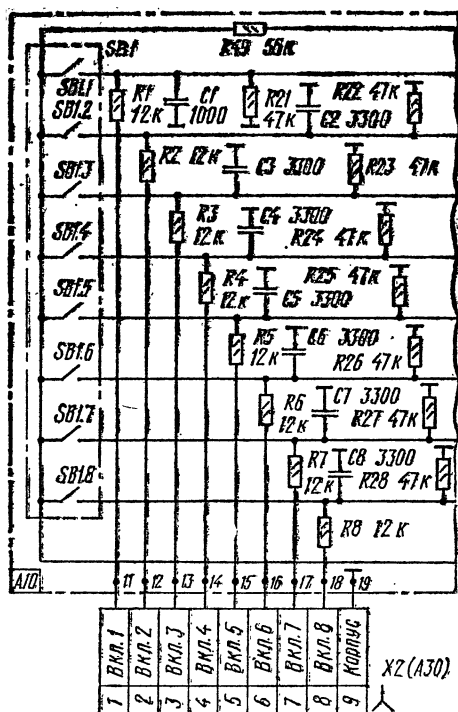 R49 56к
SB1
SB1.1
R1
12к
C1
1000
R21
47к
R22 47к
C2 3300
SB1.2
R2 12к
C3 3300
R23 47к
SB1.3
R3
12к
C4 3300
R24 47к
SB1.4
R4
12к
R25 47к
C5 3300
SB1.5
R5
12к
C6 3300
R26 47к
SB1.6
R6
12к
C7 3300
R27 47к
SB1.7
R7
12к
C8 3300
R28 47к
SB1.8
R8 12к
A10
11 12 13 14 15 16 17 18 19
Вкл.1
Вкл.2
Вкл.3
Вкл.4
Вкл.5
Вкл.6
Вкл.7
Вкл.8
Корпус
1 2 3 4 5 6 7 8 9
X2 (A30)